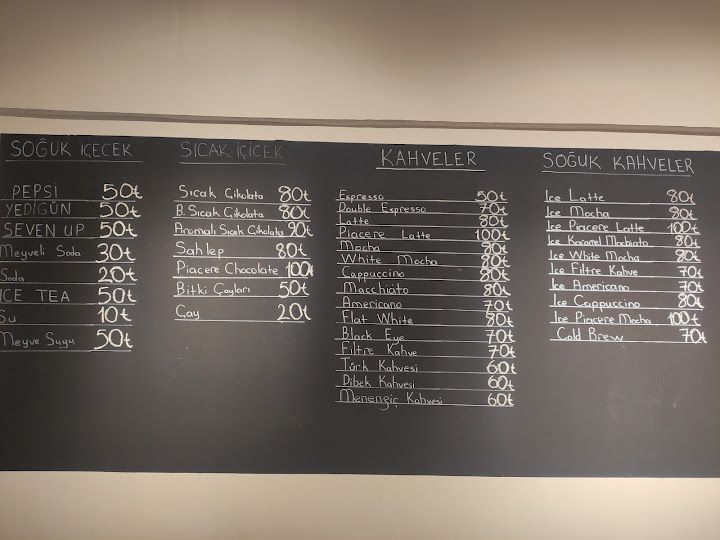 SOĞUK İÇECEK
PEPSİ 50₺
YEDİGÜN 50₺
SEVEN UP 50₺
Meyveli Soda 30₺
Soda 20₺
ICE TEA 50₺
Su 10₺
Meyve Suyu 50₺
SICAK İÇİCEK
Sıcak Çikolata 80₺
B. Sıcak Çikolata 80₺
Aromalı Sıcak Çikolata 90₺
Sahlep 80₺
Piacere Chocolate 100₺
Bitki Çayları 50₺
Çay 20₺
KAHVELER
Espresso 50₺
Double Espresso 70₺
Latte 80₺
Piacere Latte 100₺
Mocha 80₺
White Mocha 80₺
Cappuccino 80₺
Macchiato 80₺
Americano 70₺
Flat White 80₺
Black Eye 70₺
Filtre Kahve 70₺
Türk Kahvesi 60₺
Dibek Kahvesi 60₺
Menengiç Kahvesi 60₺
SOĞUK KAHVELER
Ice Latte 80₺
Ice Mocha 80₺
Ice Piacere Latte 100₺
Ice Karamel Machiato 80₺
Ice White Mocha 80₺
Ice Filtre Kahve 70₺
Ice Americano 70₺
Ice Cappuccino 80₺
Ice Piacere Mocha 100₺
Cold Brew 70₺